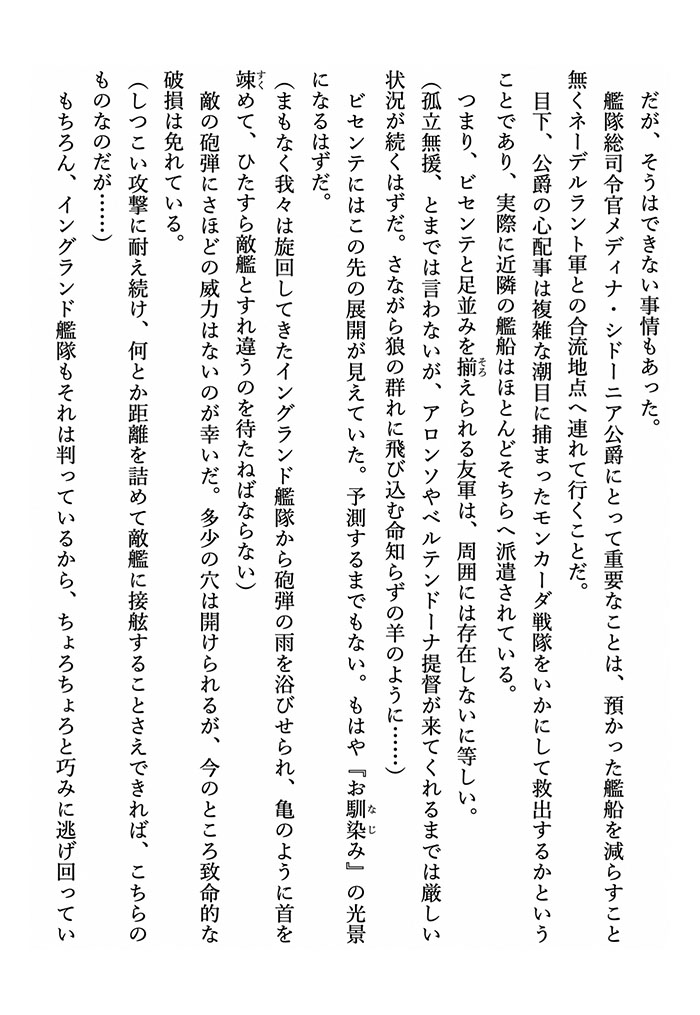 だが、そうはできない事情もあった。
艦隊総司令官メディナ・シドーニア公爵にとって重要なことは、預かった艦船を減らすこと
無くネーデルラント軍との合流地点へ連れて行くことだ。
目下、公爵の心配事は複雑な潮目に捕まったモンカーダ戦隊をいかにして救出するかという
ことであり、実際に近隣の艦船はほとんどそちらへ派遣されている。
つまり、ビセンテと足並みを揃えられる友軍は、周囲には存在しないに等しい。
(孤立無援、とまでは言わないが、アロンソやベルテンドーナ提督が来てくれるまでは厳しい
状況が続くはずだ。さながら狼の群れに飛び込む命知らずの羊のように……)
ビセンテにはこの先の展開が見えていた。予測するまでもない。もはや『お馴染み』の光景
になるはずだ。
(まもなく我々は旋回してきたイングランド艦隊から砲弾の雨を浴びせられ、亀のように首を
竦めて、ひたすら敵艦とすれ違うのを待たねばならない)
敵の砲弾にさほどの威力はないのが幸いだ。多少の穴は開けられるが、今のところ致命的な
破損は免れている。
(しつこい攻撃に耐え続け、何とか距離を詰めて敵艦に接舷することさえできれば、こちらの
ものなのだが……)
もちろん、イングランド艦隊もそれは判っているから、ちょろちょろと巧みに逃げ回ってい